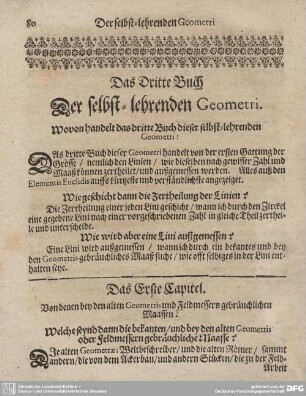 80 Der selbst-lehrenden Geometri
Das Dritte Buch
Der selbst-lehrenden Geometri.
Wovon handelt das dritte Buch dieser selbst-lehrenden
Geometri?
DAs dritte Buch dieser Geometri handelt von der ersten Gattung der
Grösse / nemlich den Linien / wie dieselben nach gewisser Zahl und
Maaß können zertheilet / und außgemessen werden. Alles auß den
Elementis Euclidis auffs kürtzeste und verständlichste angezeiget.
Wie geschicht dann die Zertheilung der Linien?
Die Zertheilung einer jeden Lini geschicht / wann ich durch den Zirckel
eine gegebene Lini nach einer vorgeschriebenen Zahl in gleiche Theil zerthei-
le und unterscheide.
Wie wird aber eine Lini außgemessen?
Eine Lini wird außgemessen / wann ich durch ein bekantes und bey
den Geometris gebräuchliches Maaß suche / wie offt selbiges in der Lini ent-
halten seye.
Das Erste Capitel.
Von denen bey den alten Geometris und Feldmessern gebräuchlichen
Maassen?
Welche seynd dann die bekanten / und bey den alten Geometris
oder Feldmessern gebräuchliche Maasse?
DIe alten Geometræ / Weltbeschreiber / und die alten Römer / sammt
andern / die von dem Ackerbau / und andern Stücken / die zu der Feld-
Arbeit